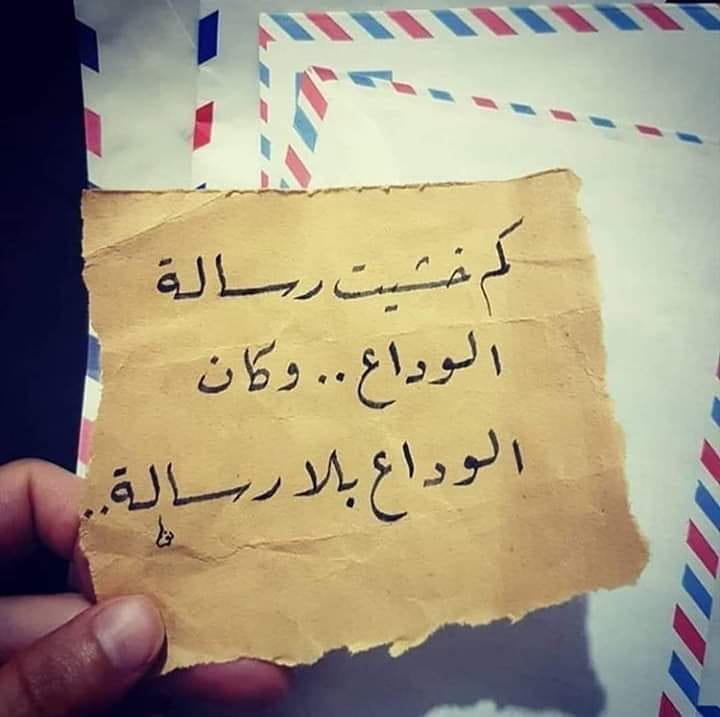 كم خشيت رسالة
الوداع .. وكان
الوداع بلا رسالة ..